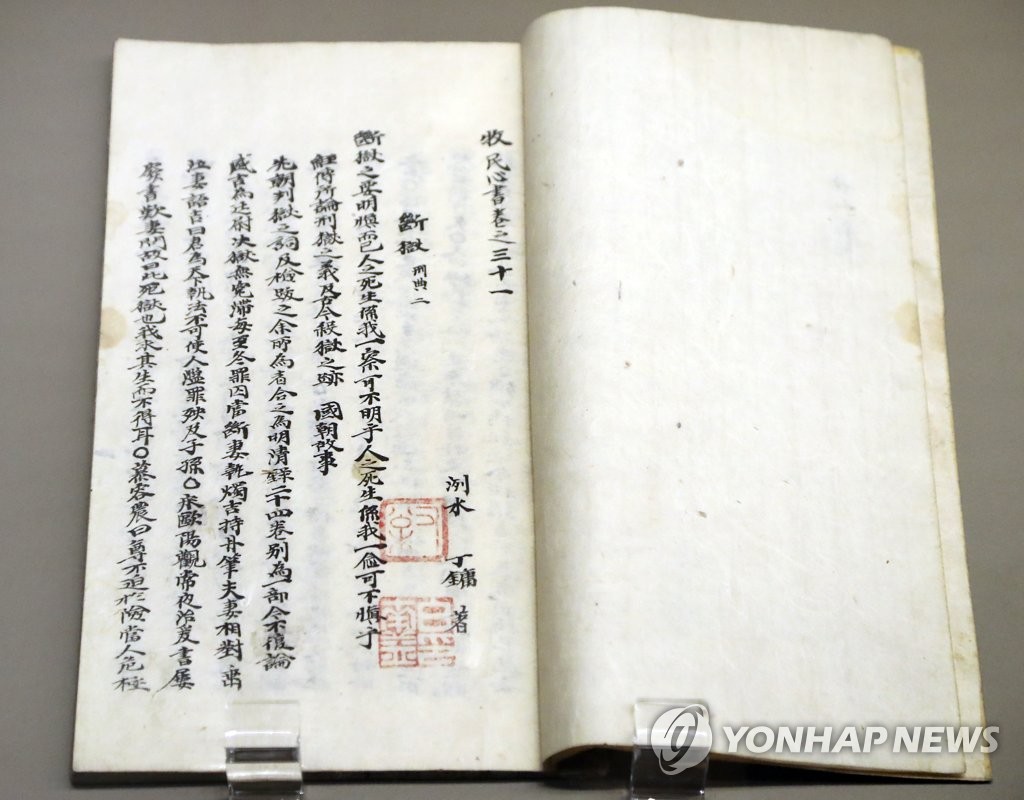 牧民心書卷之三十一
洌水 丁鏞 著
斷獄 刑典二
斷獄之要明愼而已人之死生係我一察可不明乎人之死生係我一念可不愼乎
經傳所論刑獄之義及古今殺獄之跡 國朝故事
先朝判獄之詞及檢跋之余所爲者合之爲明清錄二十四卷別爲一部今不復論
盛吉爲廷尉決獄無冤滯每至冬罪囚當斷妻執燭吉持丹筆夫妻相對垂
泣妻語吉曰君爲天下執法不可使人濫罪殃及子孫○宋歐陽觀常夜治爰書屢
廢書歎妻問故曰此死獄也我求其生而不得耳○慕容農曰尊不迫於險當人危極
YONHAP NEWS